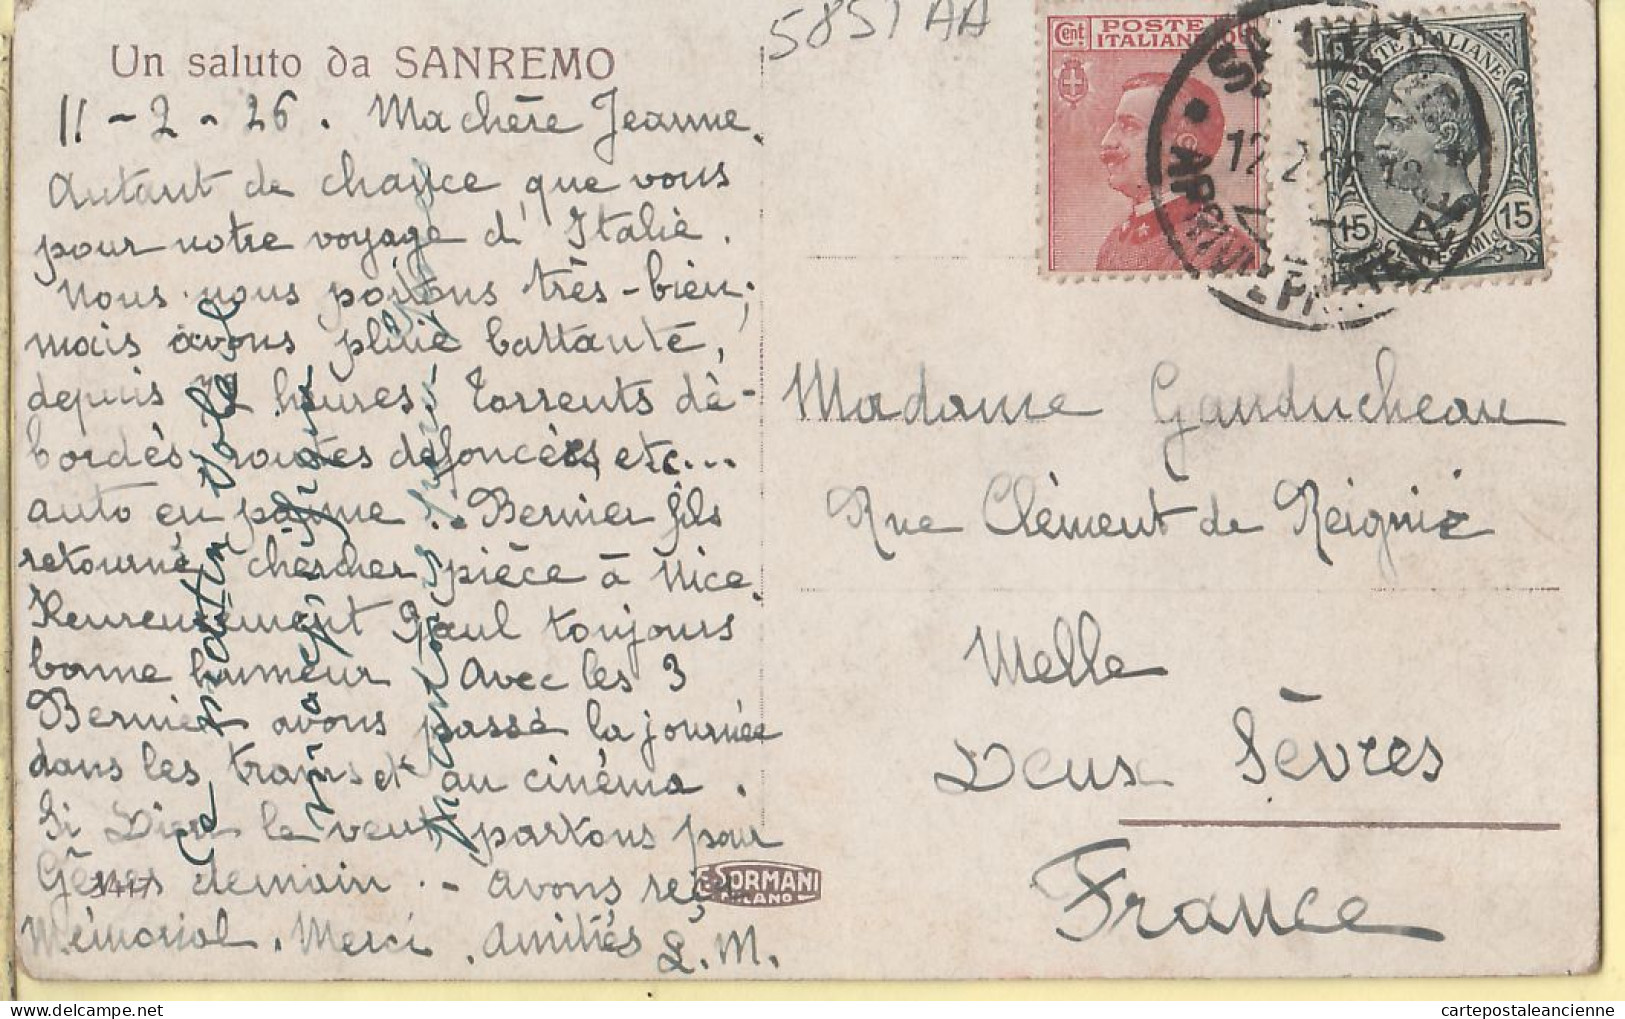 Un saluto da SANREMO
11-2-26. Ma chère Jeanne.
Autant de chance que vous
pour notre voyage d'Italie.
Nous nous portons très-bien;
mais avons pluie battante,
depuis heures. Torrents dé-
bordés, routes défoncées, etc...
auto en panne. Bernier fils
retourné chercher pièce à Nice.
Heureusement Paul toujours
bonne humeur. Avec les 3
Bernier avons passé la journée
dans les trams et au cinéma.
Si Dieu le veut, partons pour
Gênes demain. - Avons reçu
Mémorial. Merci. Amitiés L. M.
3417
SORMANI
MILANO
5851 AA
Cent
POSTE
ITALIANE
POSTE ITALIANE
15 15
CENTESIMI
12.2.26
Madame Gauducheau
Rue Clément de Reignié
Melle
Deux Sèvres
France
cartepostaleancienne